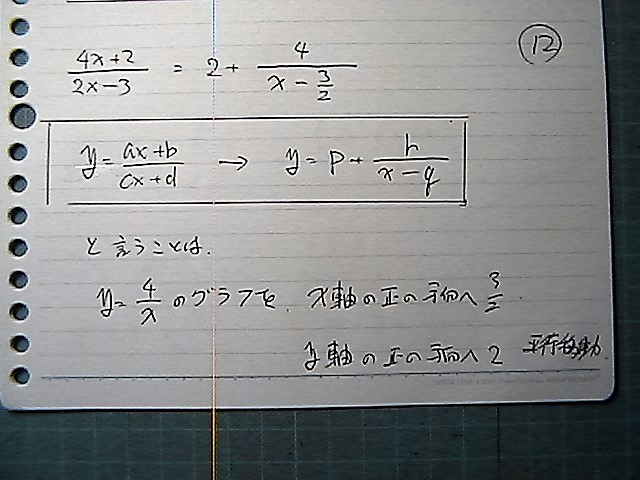 ⑫
(4x+2)/(2x-3) = 2 + 4/(x - 3/2)
y = (ax+b)/(cx+d) → y = p + h/(x-q)
と言うことは.
y = 4/x のグラフを. x軸の正の方向へ 3/2
y軸の正の方向へ 2 平行移動